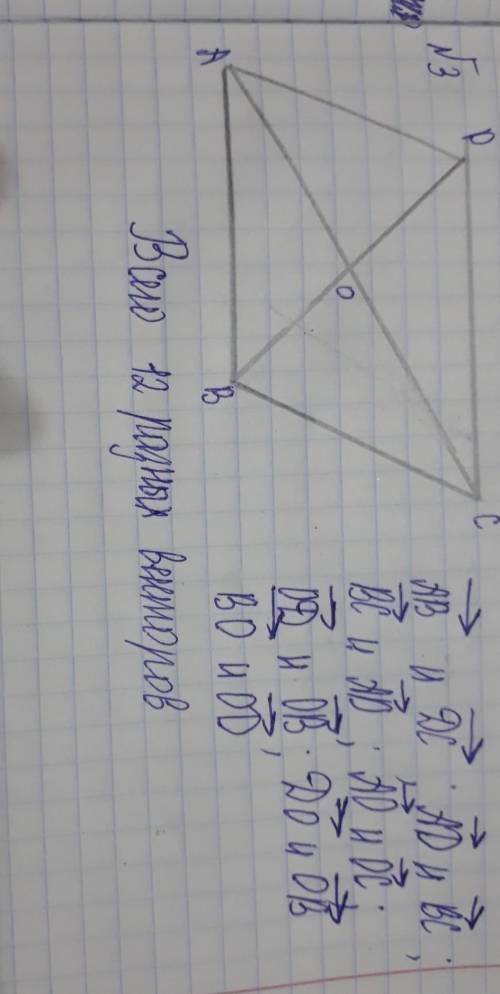 √3
D C
O
A B
AB и DC ; AD и BC ,
BC и AD ; AO и OC ;
и OB ; DO и OB
BO и OD ,
Всего 12 разных векторов